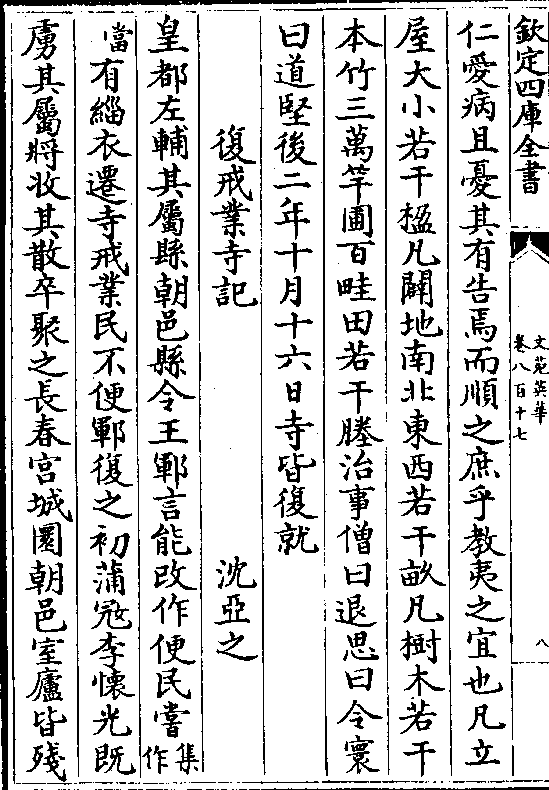 欽定四庫全書
文苑英華
卷八百十七
八
仁愛病且憂其有告焉而順之庶乎教夷之宜也凡立
屋大小若干楹凡闢地南北東西若干畝凡樹木若干
本竹三萬竿圃百畦田若干塍治事僧曰退思曰令寰
曰道堅後二年十月十六日寺皆復就
復戒業寺記 沈亞之
皇都左輔其屬縣朝邑縣令王鄆言能改作便民嘗集作
當有緇衣遷寺戒業民不便鄆復之初蒲冦李懷光既
虜其屬將收其散卒聚之長春宫城圜朝邑室廬皆殘